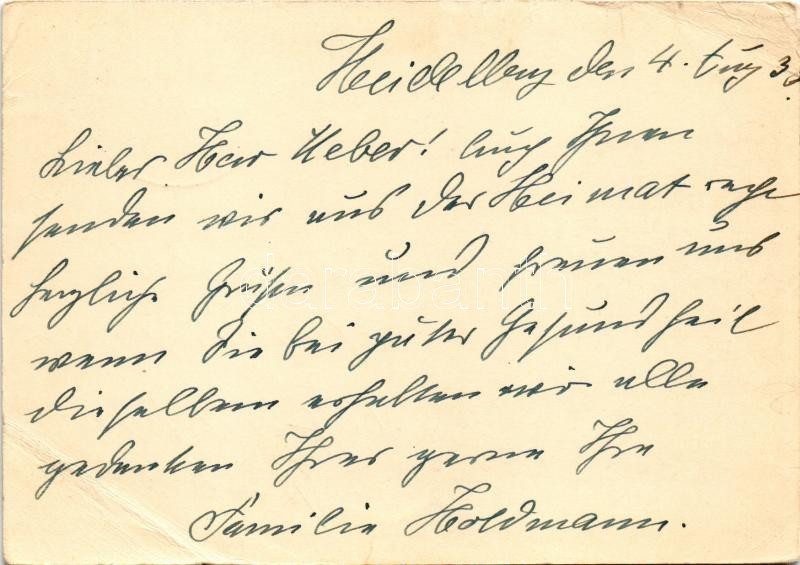 Heidelberg den 4. Aug 38.
Lieber Herr Ueber! Auch Ihnen
senden wir aus der Heimat recht
herzliche Grüße und freuen uns
wenn Sie bei guter Gesundheit
dieselben erhalten wir alle
gedenken Ihrer gerne Ihre
Familie Holdmann.
darabanth